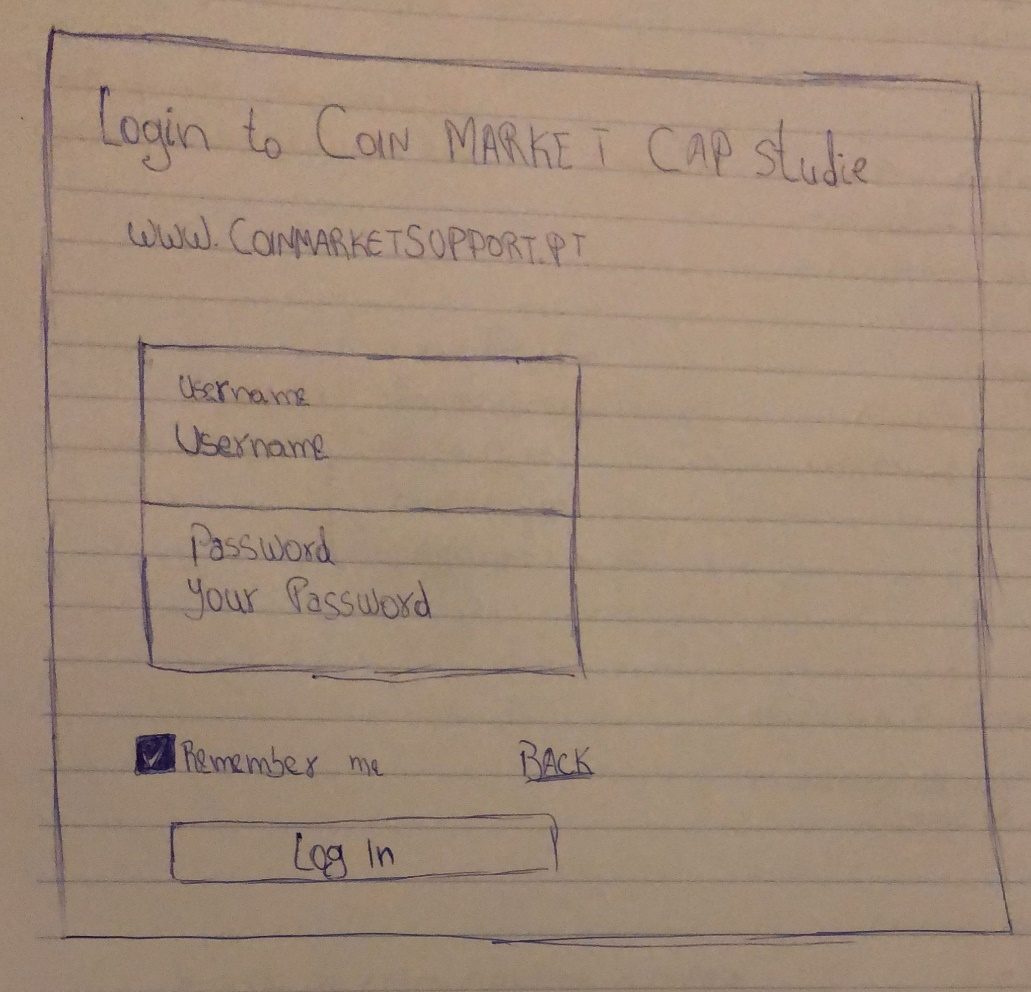 Login to COIN MARKET CAP studie
WWW.COINMARKETSOPPORT.PT
Username
Username
Password
Your Password
Remember me
BACK
Log In